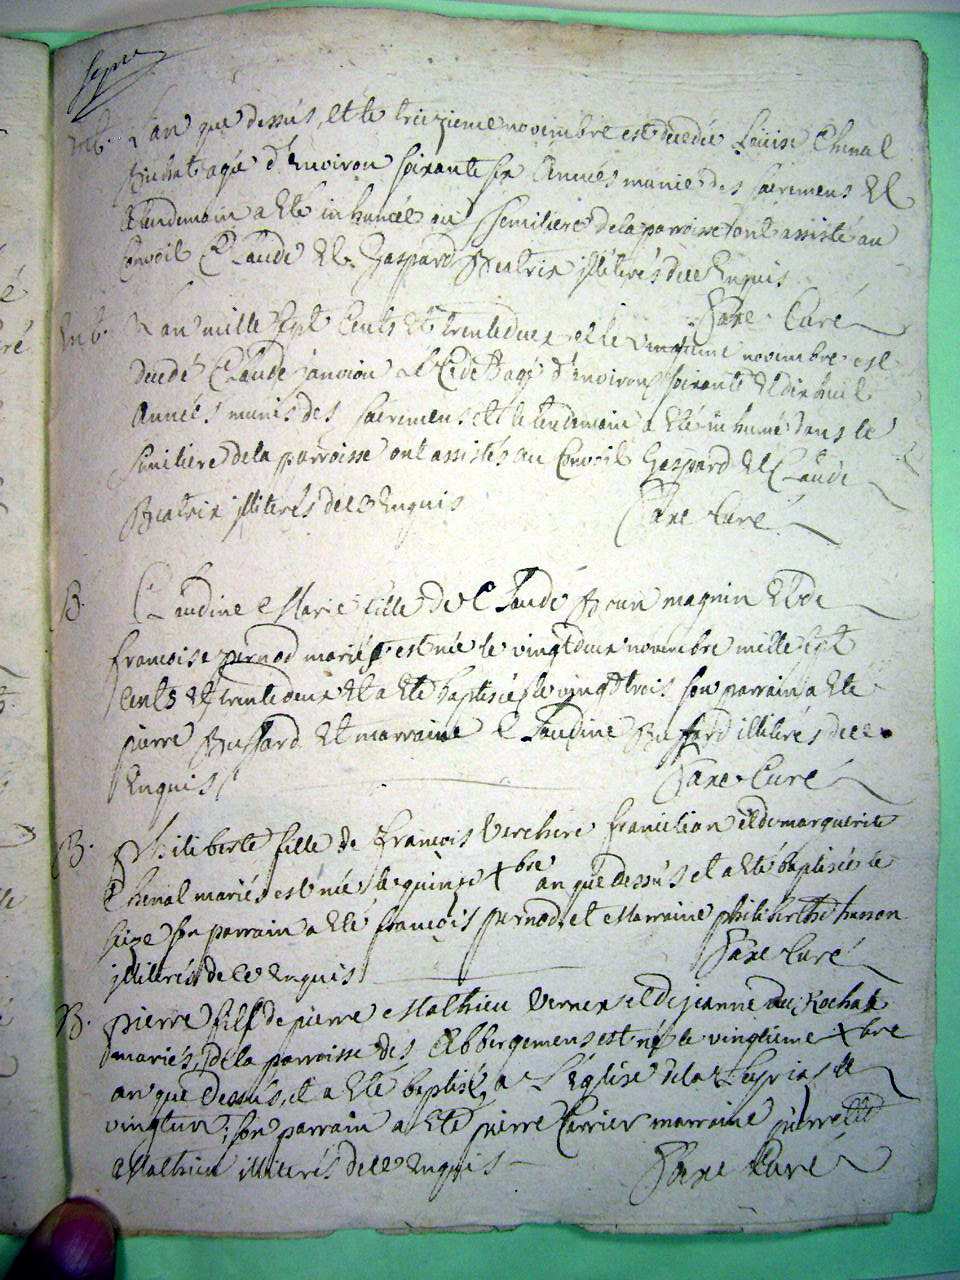 Lan que dessus, et le treizieme novembre est decedée Loüise Chenal
Buchat agée d'Environ soixante six Années munie des sacremens Et
le lendemain a Eté inhumée au semiliere de la parroisse ont assisté au
Convoit Claude Et Gaspard Beatrix illiterés de ce Enquis
Faxe Curé
L'an mille sept Cents Et trente deux et le vingtieme novembre est
decedé Claude janvion agé d'environ soixante Et dix huit
Années munis des sacremens et le lendemain a eté inhumé dans le
semiliere de la parroisse ont assistés au Convoit Gaspard Et Claude
Beatrix illiterés de ce Enquis Faxe Curé
B. Claudine Marie fille de Claude Brun magnin Et de
francoise pernod mariés est née le vingt deux novembre mille sept
Cents Et trente deux Et a Eté baptisée le vingt trois son parrain a Eté
pierre Bussard Et marraine Claudine Buffard illiterés de ce
Enquis Faxe Curé
B. Philiberte fille de francois Verchere et de marguerite
Chenal mariés est née le quinze Xbre an que dessus et a Eté baptisée le
seize son parrain a Eté francois pernod, et Marraine philiberthe husson
illiterés de ce Enquis Faxe Curé
B. pierre fils de pierre Mathieu Vernex et de jeanne du Rochat
mariés, de la parroisse des Abbergemens est né le vingtieme Xbre
an que Dessus, et a Eté baptisé a L'Eglise de la Leyrias le
vingt un; son parrain a Eté pierre Carrier marraine pierrette
Mathieu illiterés de ce Enquis Faxe Curé